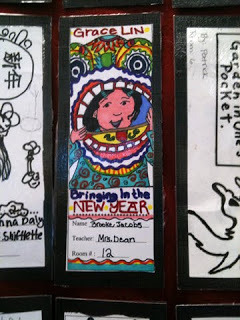 Grace LIN
Bringing In the
NEW YEAR
Name: Brooke Jacobs
Teacher: Mrs. Dean
Room #: 12
新年
nna Daly
Shiflette
By Patrick
Room 6
Garden money
Pocket.